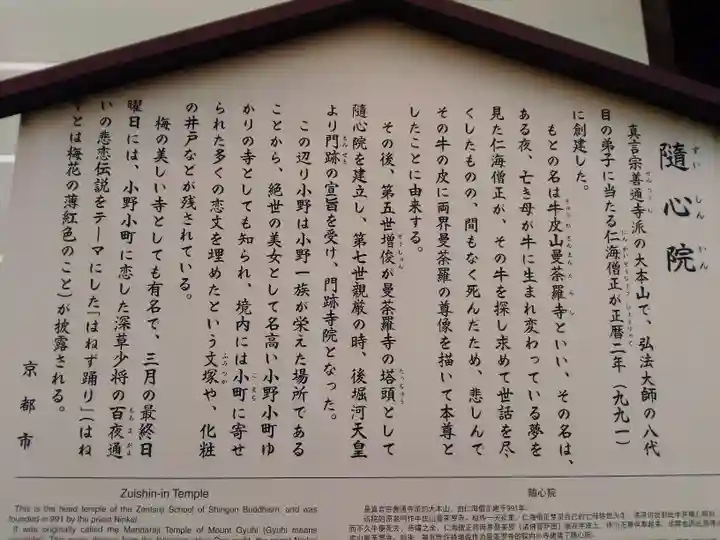 隨心院
真言宗善通寺派の大本山で、弘法大師の八代
目の弟子に当たる仁海僧正が正暦二年（九九一）
に創建した。
もとの名は牛皮山曼荼羅寺といい、その名は、
ある夜、亡き母が牛に生まれ変わっている夢を
見た仁海僧正が、その牛を探し求めて世話を尽
くしたものの、間もなく死んだため、悲しんで
その牛の皮に両界曼荼羅の尊像を描いて本尊と
したことに由来する。
その後、第五世増俊が曼荼羅寺の塔頭として
隨心院を建立し、第七世親厳の時、後堀河天皇
より門跡の宣旨を受け、門跡寺院となった。
この辺り小野は小野一族が栄えた場所である
ことから、絶世の美女として名高い小野小町ゆ
かりの寺としても知られ、境内には小町に寄せ
られた多くの恋文を埋めたという文塚や、化粧
の井戸などが残されている。
梅の美しい寺としても有名で、三月の最終日
曜日には、小野小町に恋した深草少将の百夜通
いの悲恋伝説をテーマにした「はねず踊り」（はね
とは梅花の薄紅色のこと）が披露される。
京都市
Zuishin-in Temple
This is the head temple of the Zentsuji School of Shingon Buddhism, and was
founded in 991 by the priest Ninkai.
It was originally called the Mandaraji Temple of Mount Gyuhi (Gyuhi means
随心院